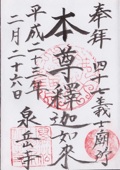 奉拝
四十七義士廟所
本尊釋迦如来
平成二十三年
二月二十六日
泉岳寺